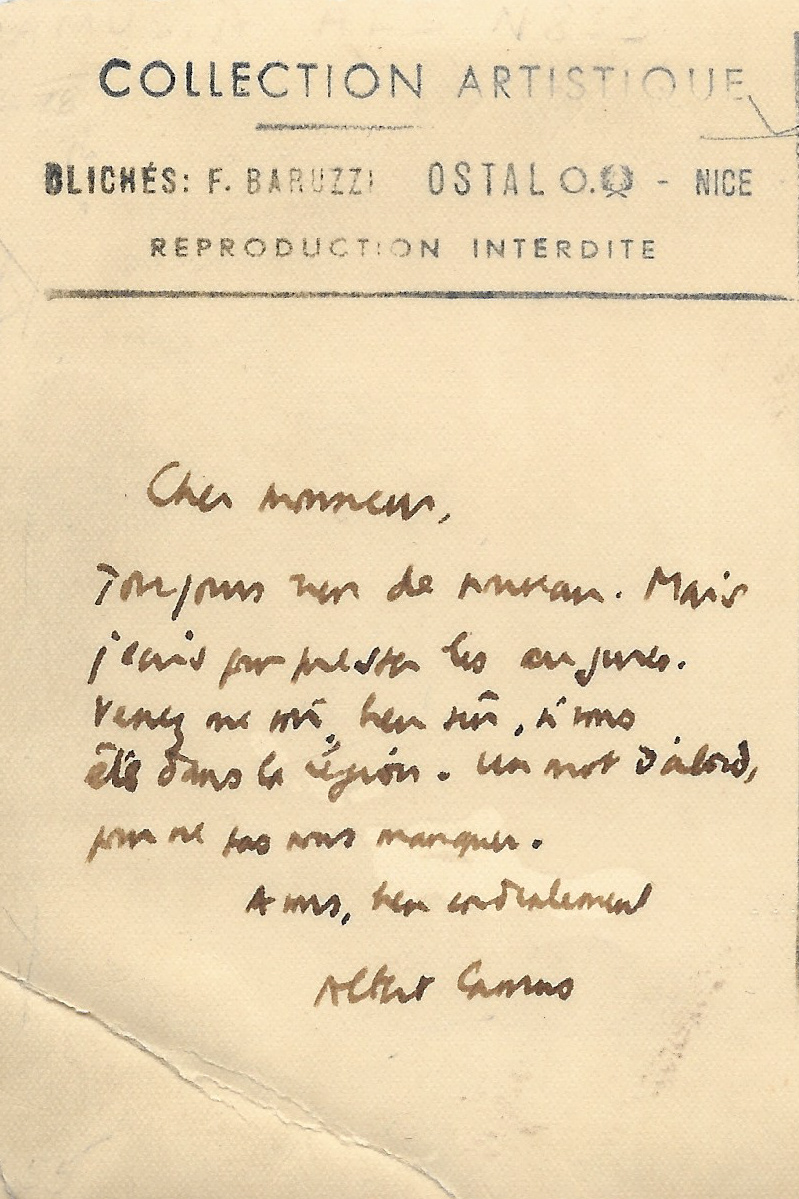 COLLECTION ARTISTIQUE
CLICHÉS: F. BARUZZI OSTAL O. - NICE
REPRODUCTION INTERDITE
Cher monsieur,
Toujours rien de nouveau. Mais
j'écris pour presser les augures.
Venez me voir, bien sûr, si vous
êtes dans la région. Un mot d'abord,
pour ne pas nous manquer.
A vous, bien cordialement
Albert Camus